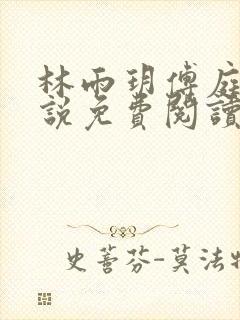 林雨玥傅庭
說免費閱讀
史蒼芬-莫法特